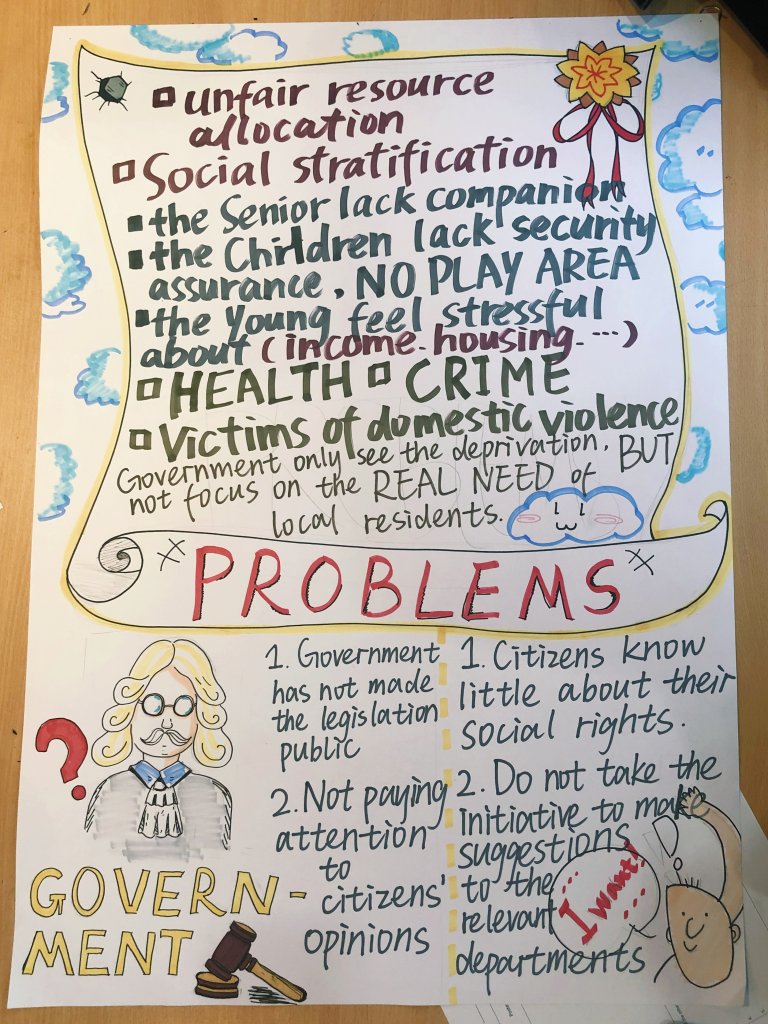 unfair resource
allocation
Social stratification
the Senior lack companion
the Children lack security
assurance, NO PLAY AREA
the Young feel stressful
about (income. housing. ...)
HEALTH CRIME
Victims of domestic violence
Government only see the deprivation, BUT
not focus on the REAL NEED of
local residents.
PROBLEMS
1. Government
has not made
the legislation
public
2. Not paying
attention
to
citizens'
opinions
1. Citizens know
little about their
social rights.
2. Do not take the
initiative to make
suggestions
to the
relevant
departments
?
GOVERN-
MENT
I want!